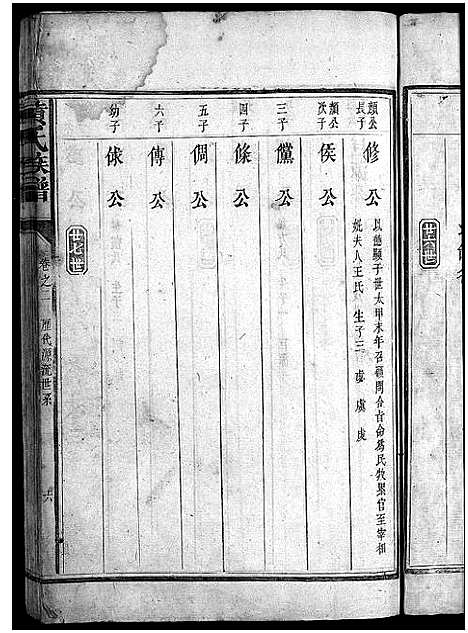 世六世
顏公長子
修公
以德顯于世太甲末年召顧問合旨命爲民牧累官至宰相
妣夫人王氏 生子三 虔 虞 虔
顏公次子
侯公
三子
儻公
四子
條公
五子
倜公
六子
傳公
幼子
俅公
世七世
黃氏族譜
卷之二
歷代源流世系
六